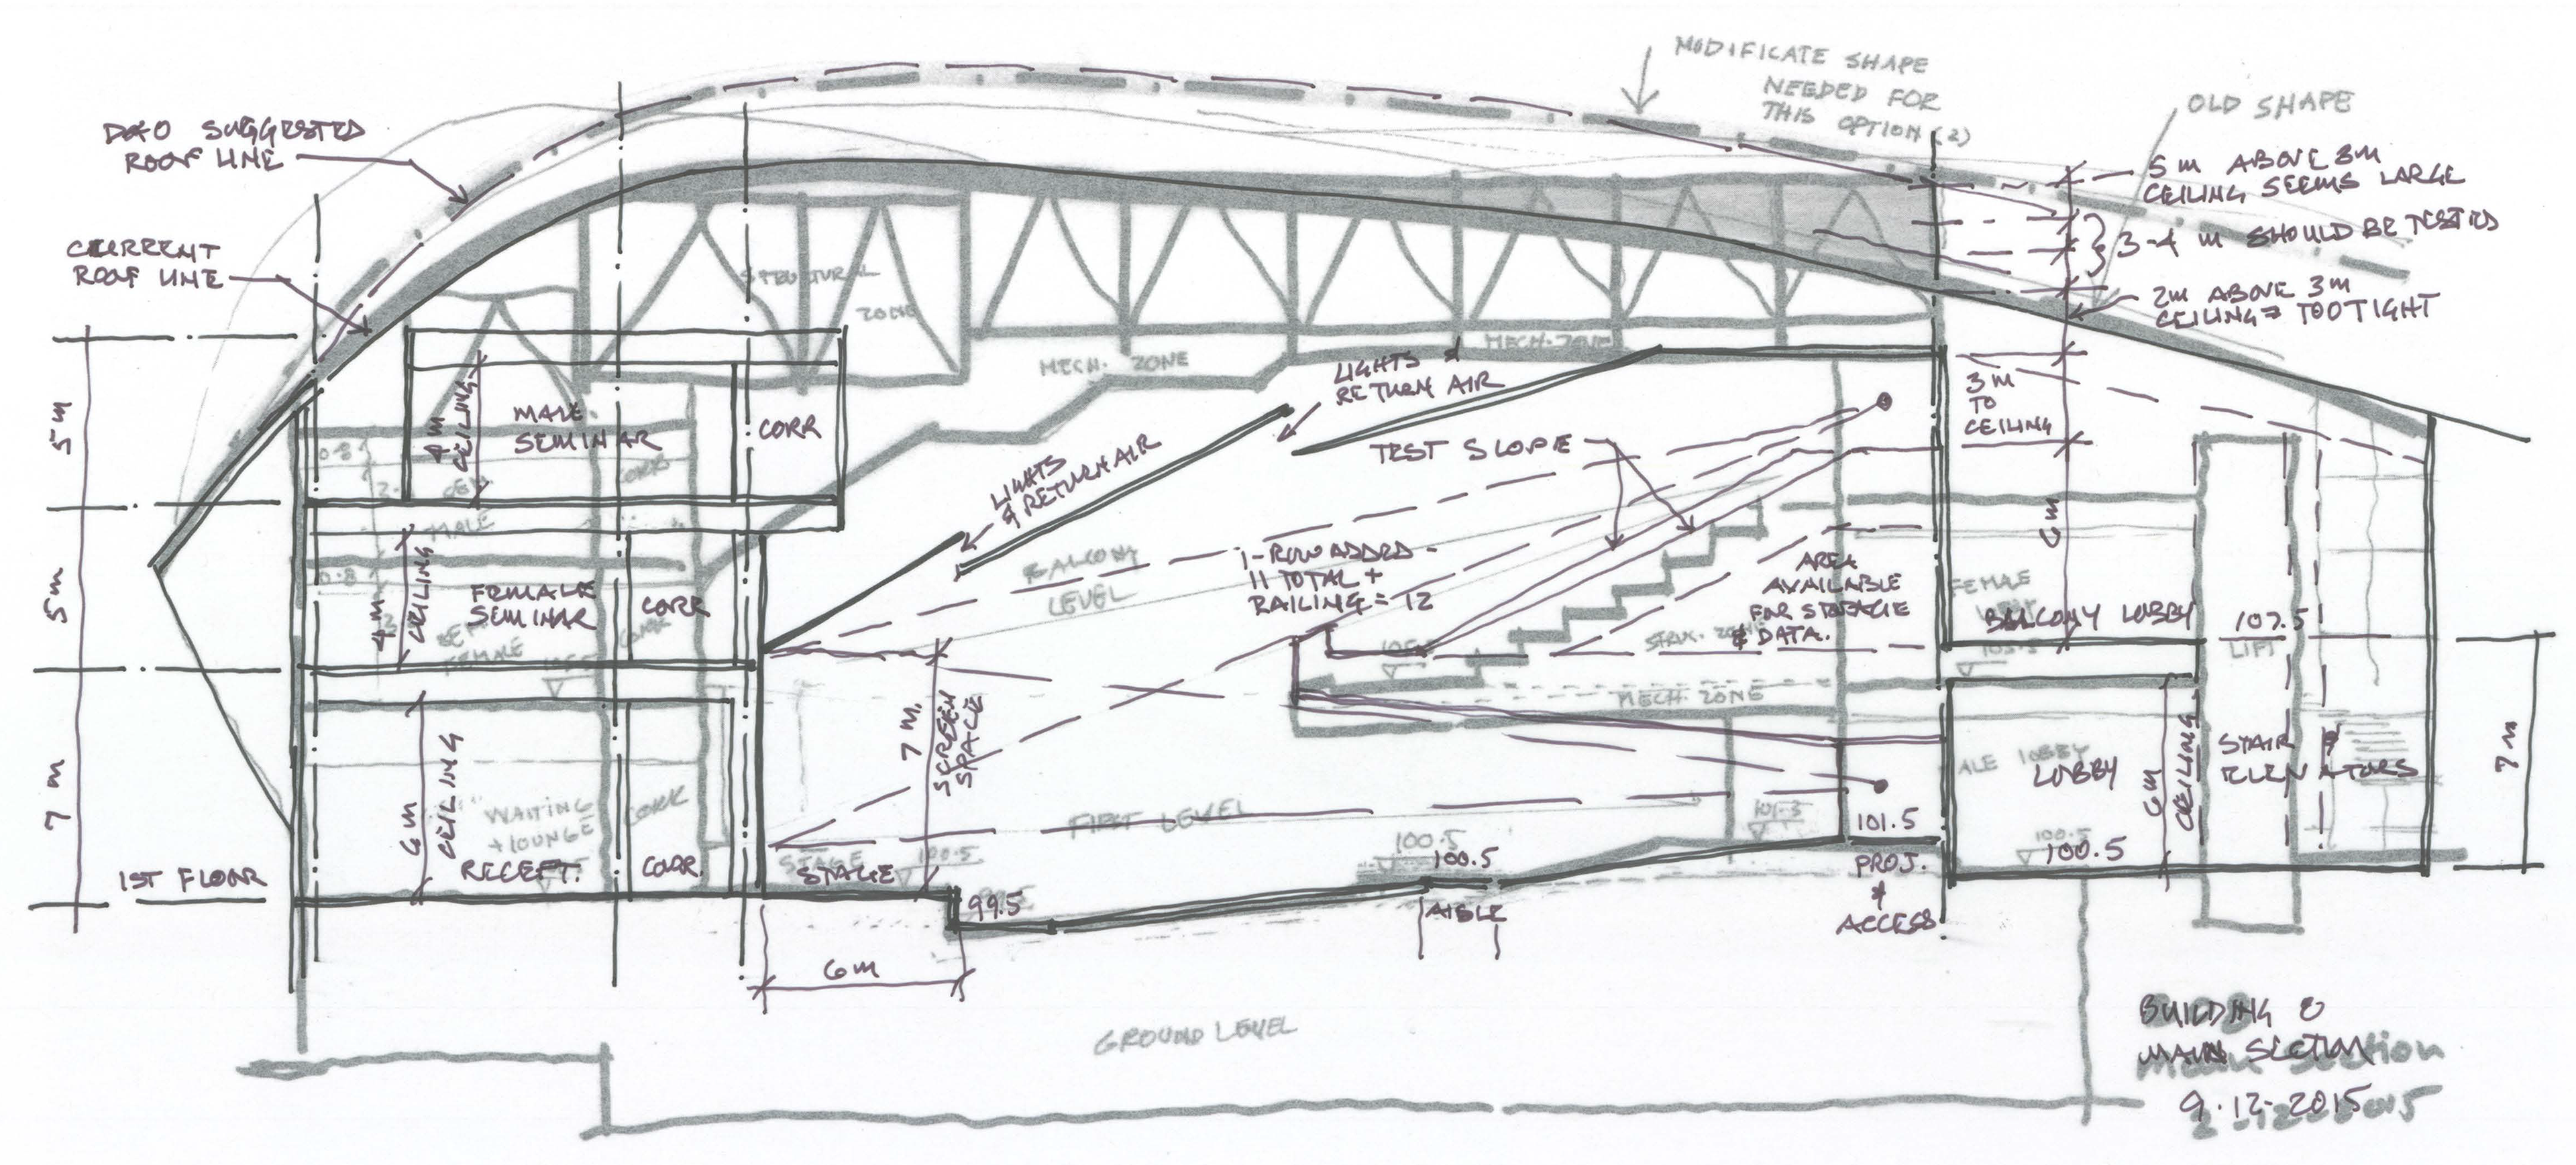 MODIFICATE SHAPE
NEEDED FOR
THIS OPTION (2)
OLD SHAPE
D&O SUGGESTED
ROOF LINE
CURRENT
ROOF LINE
5 M ABOVE 3M
CEILING SEEMS LARGE
3-4 M SHOULD BE TESTED
2M ABOVE 3M
CEILING = TOO TIGHT
3 M
TO
CEILING
6 M
STRUCTURAL
ZONE
MECH. ZONE
MECH. ZONE
LIGHTS &
RETURN AIR
LIGHTS
& RETURN AIR
TEST SLOPE
5 M
5 M
7 M
4 M
CEILING
MALE
SEMINAR
CORR
0.8
CORR
MALE
4 M
CEILING
FEMALE
SEMINAR
CORR
0.8
CORR
FEMALE
6 M
CEILING
WAITING
+ LOUNGE
CORR
RECEPT.
CORR.
1ST FLOOR
BALCONY
LEVEL
1-ROW ADDED -
11 TOTAL +
RAILING = 12
AREA
AVAILABLE
FOR STORAGE
& DATA.
STRUC. ZONE
MECH. ZONE
7 M.
SCREEN
SPACE
FIRST LEVEL
STAGE
100.5
STAGE
99.5
6 M
100.5
100.5
AISLE
101.3
101.5
PROJ.
&
ACCESS
FEMALE
BALCONY LOBBY
107.5
LIFT
LOBBY
LOBBY
6 M
CEILING
STAIR &
ELEVATORS
100.5
100.5
7 M
GROUND LEVEL
BUILDING 8
MAIN SECTION
Main Section
9-12-2015